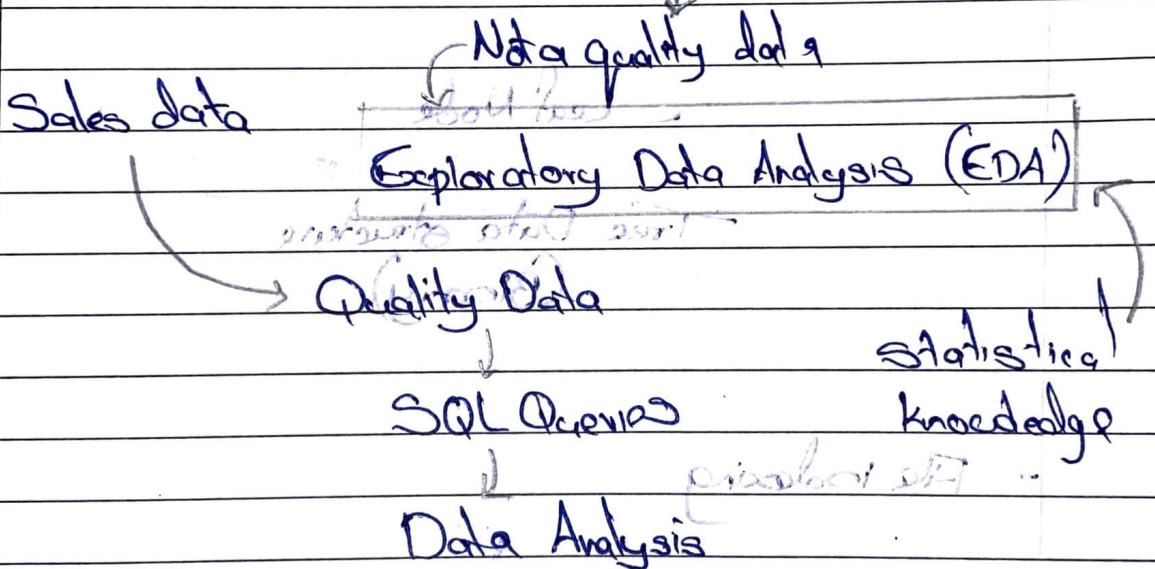 Not a quality data
Sales data
Exploratory Data Analysis (EDA)
Quality Data
Statistical
SQL Queries
knowledge
Data Analysis